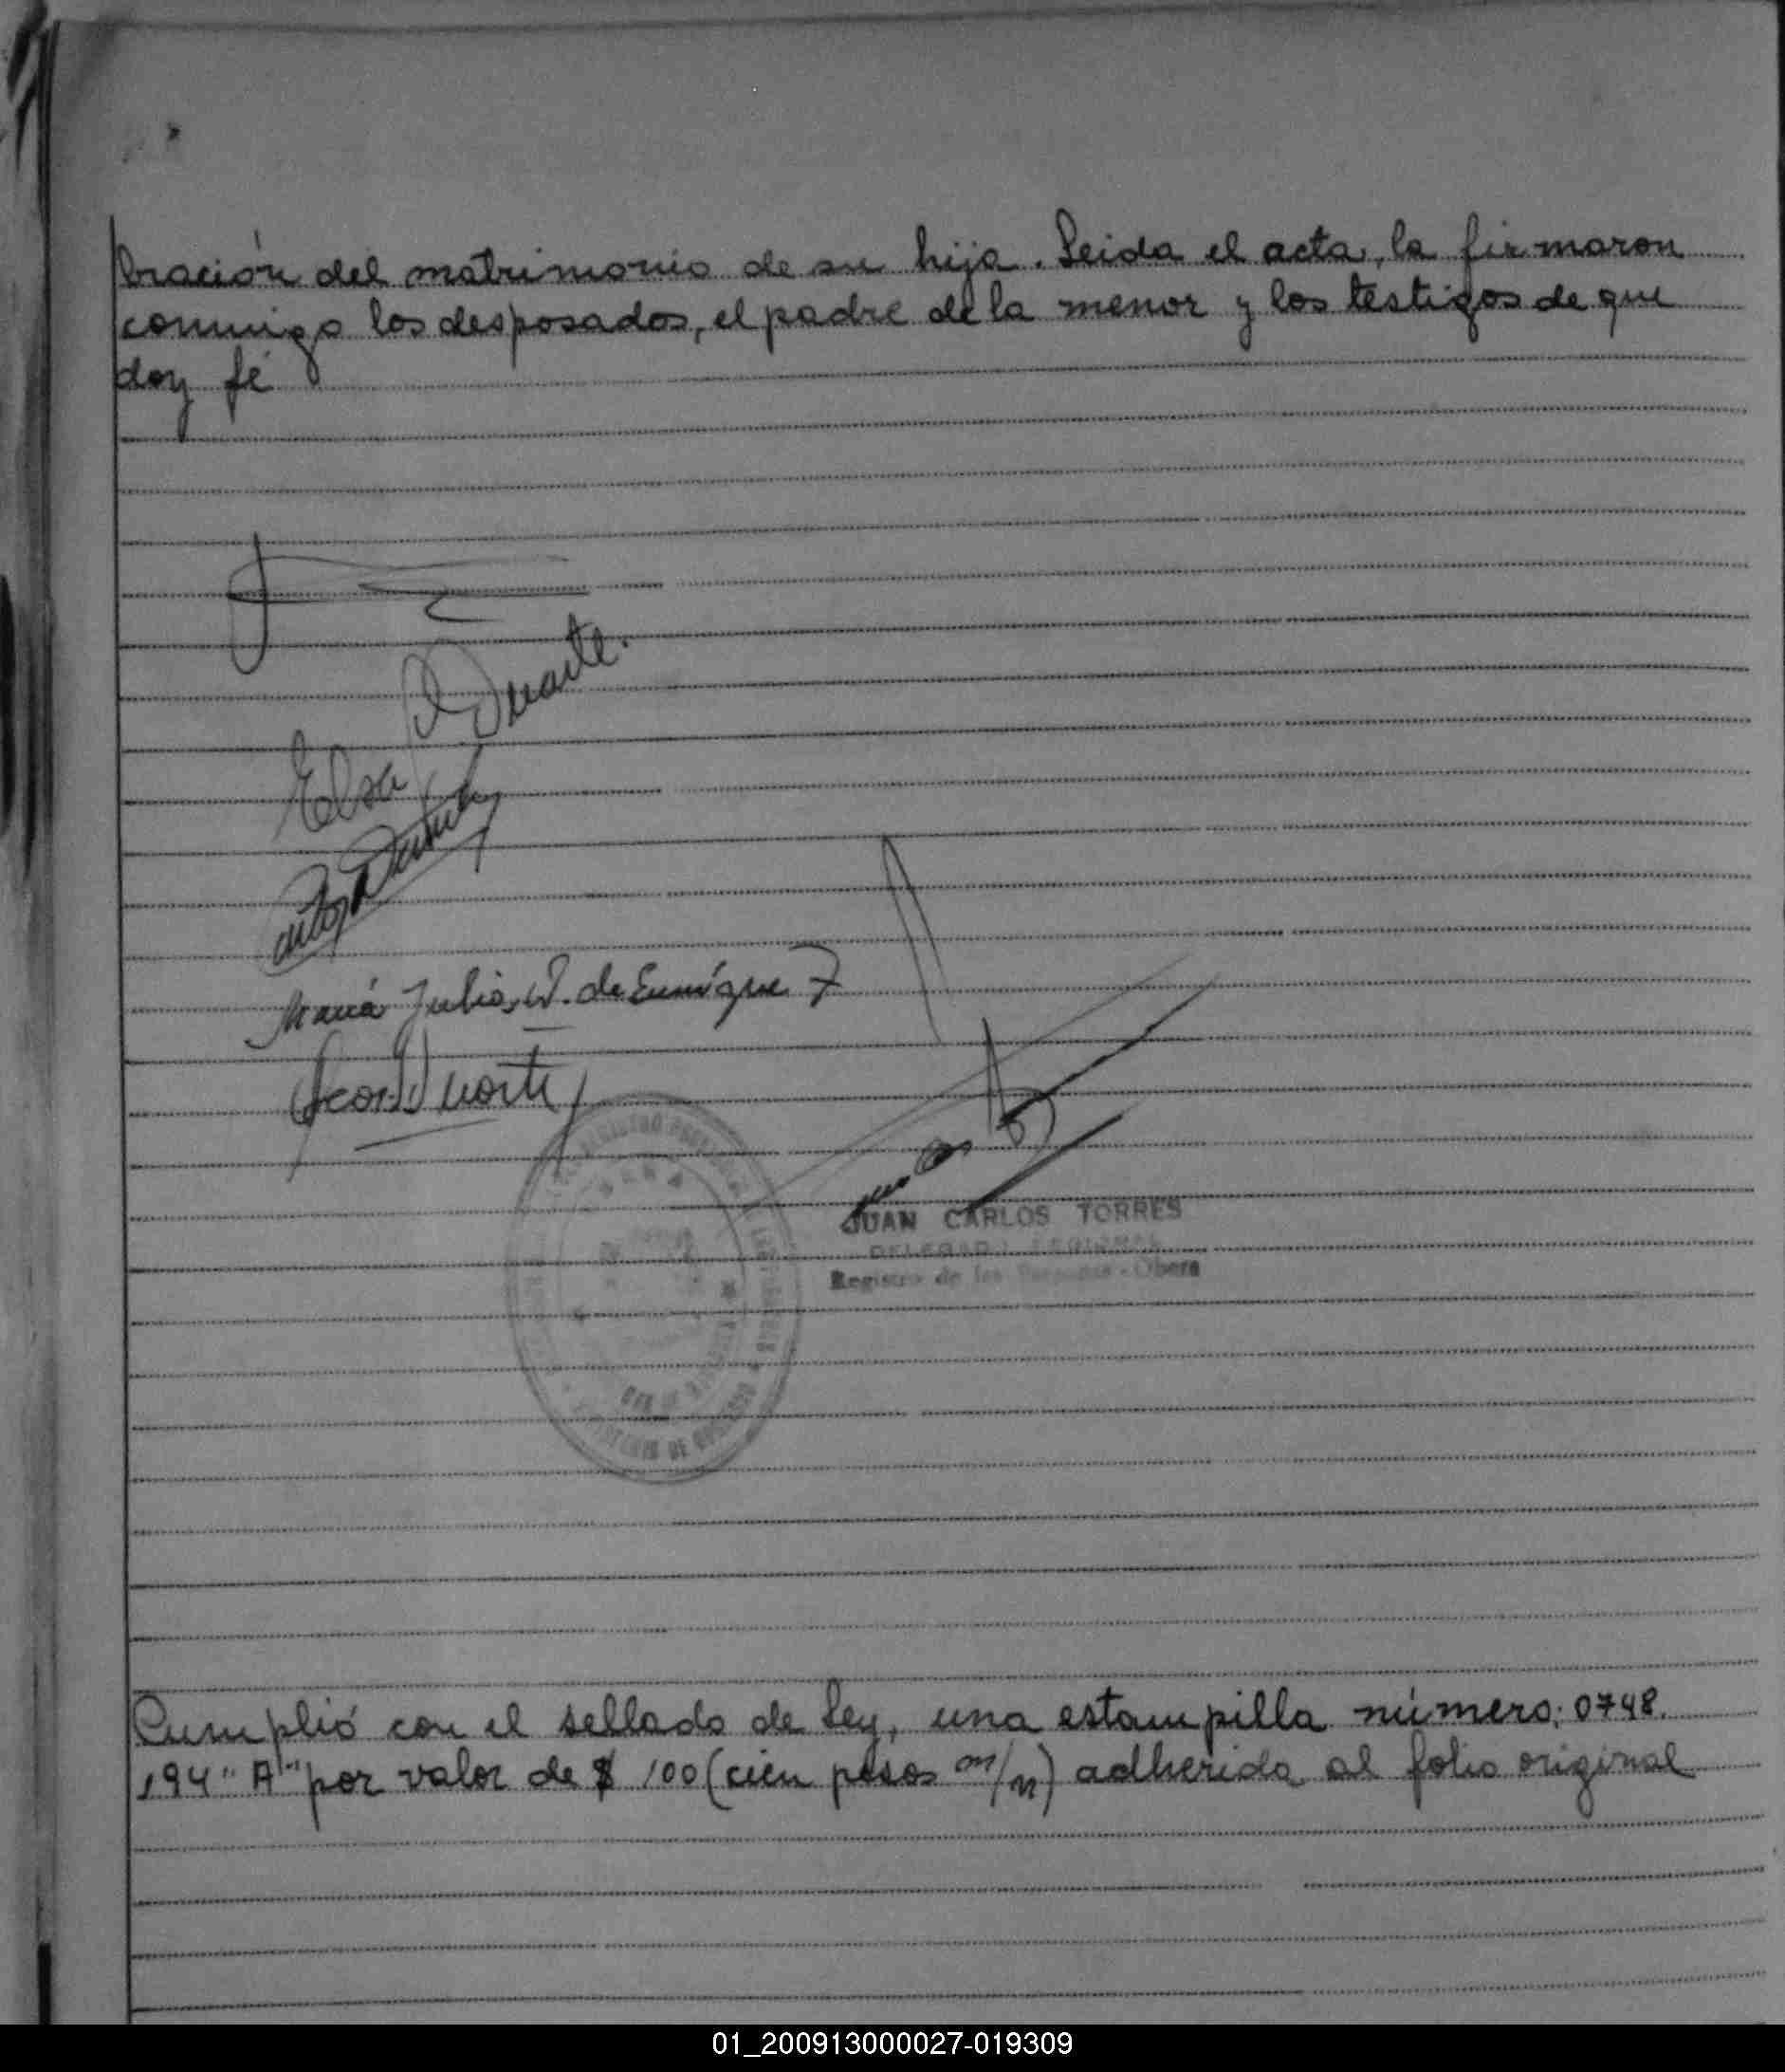 bración del matrimonio de su hija. Leida el acta, la firmaron
conmigo los desposados, el padre de la menor y los testigos de que
doy fé
Elsa Duarte.
María Julia W. de Enríquez
Oscar Duarte
JUAN CARLOS TORRES
DELEGADO REGIONAL
Registro de las Personas - Oberá
Cumplió con el sellado de Ley, una estampilla número: 0748.
194 "A" por valor de $ 100 (cien pesos m/n) adherida al folio original
01_200913000027-019309